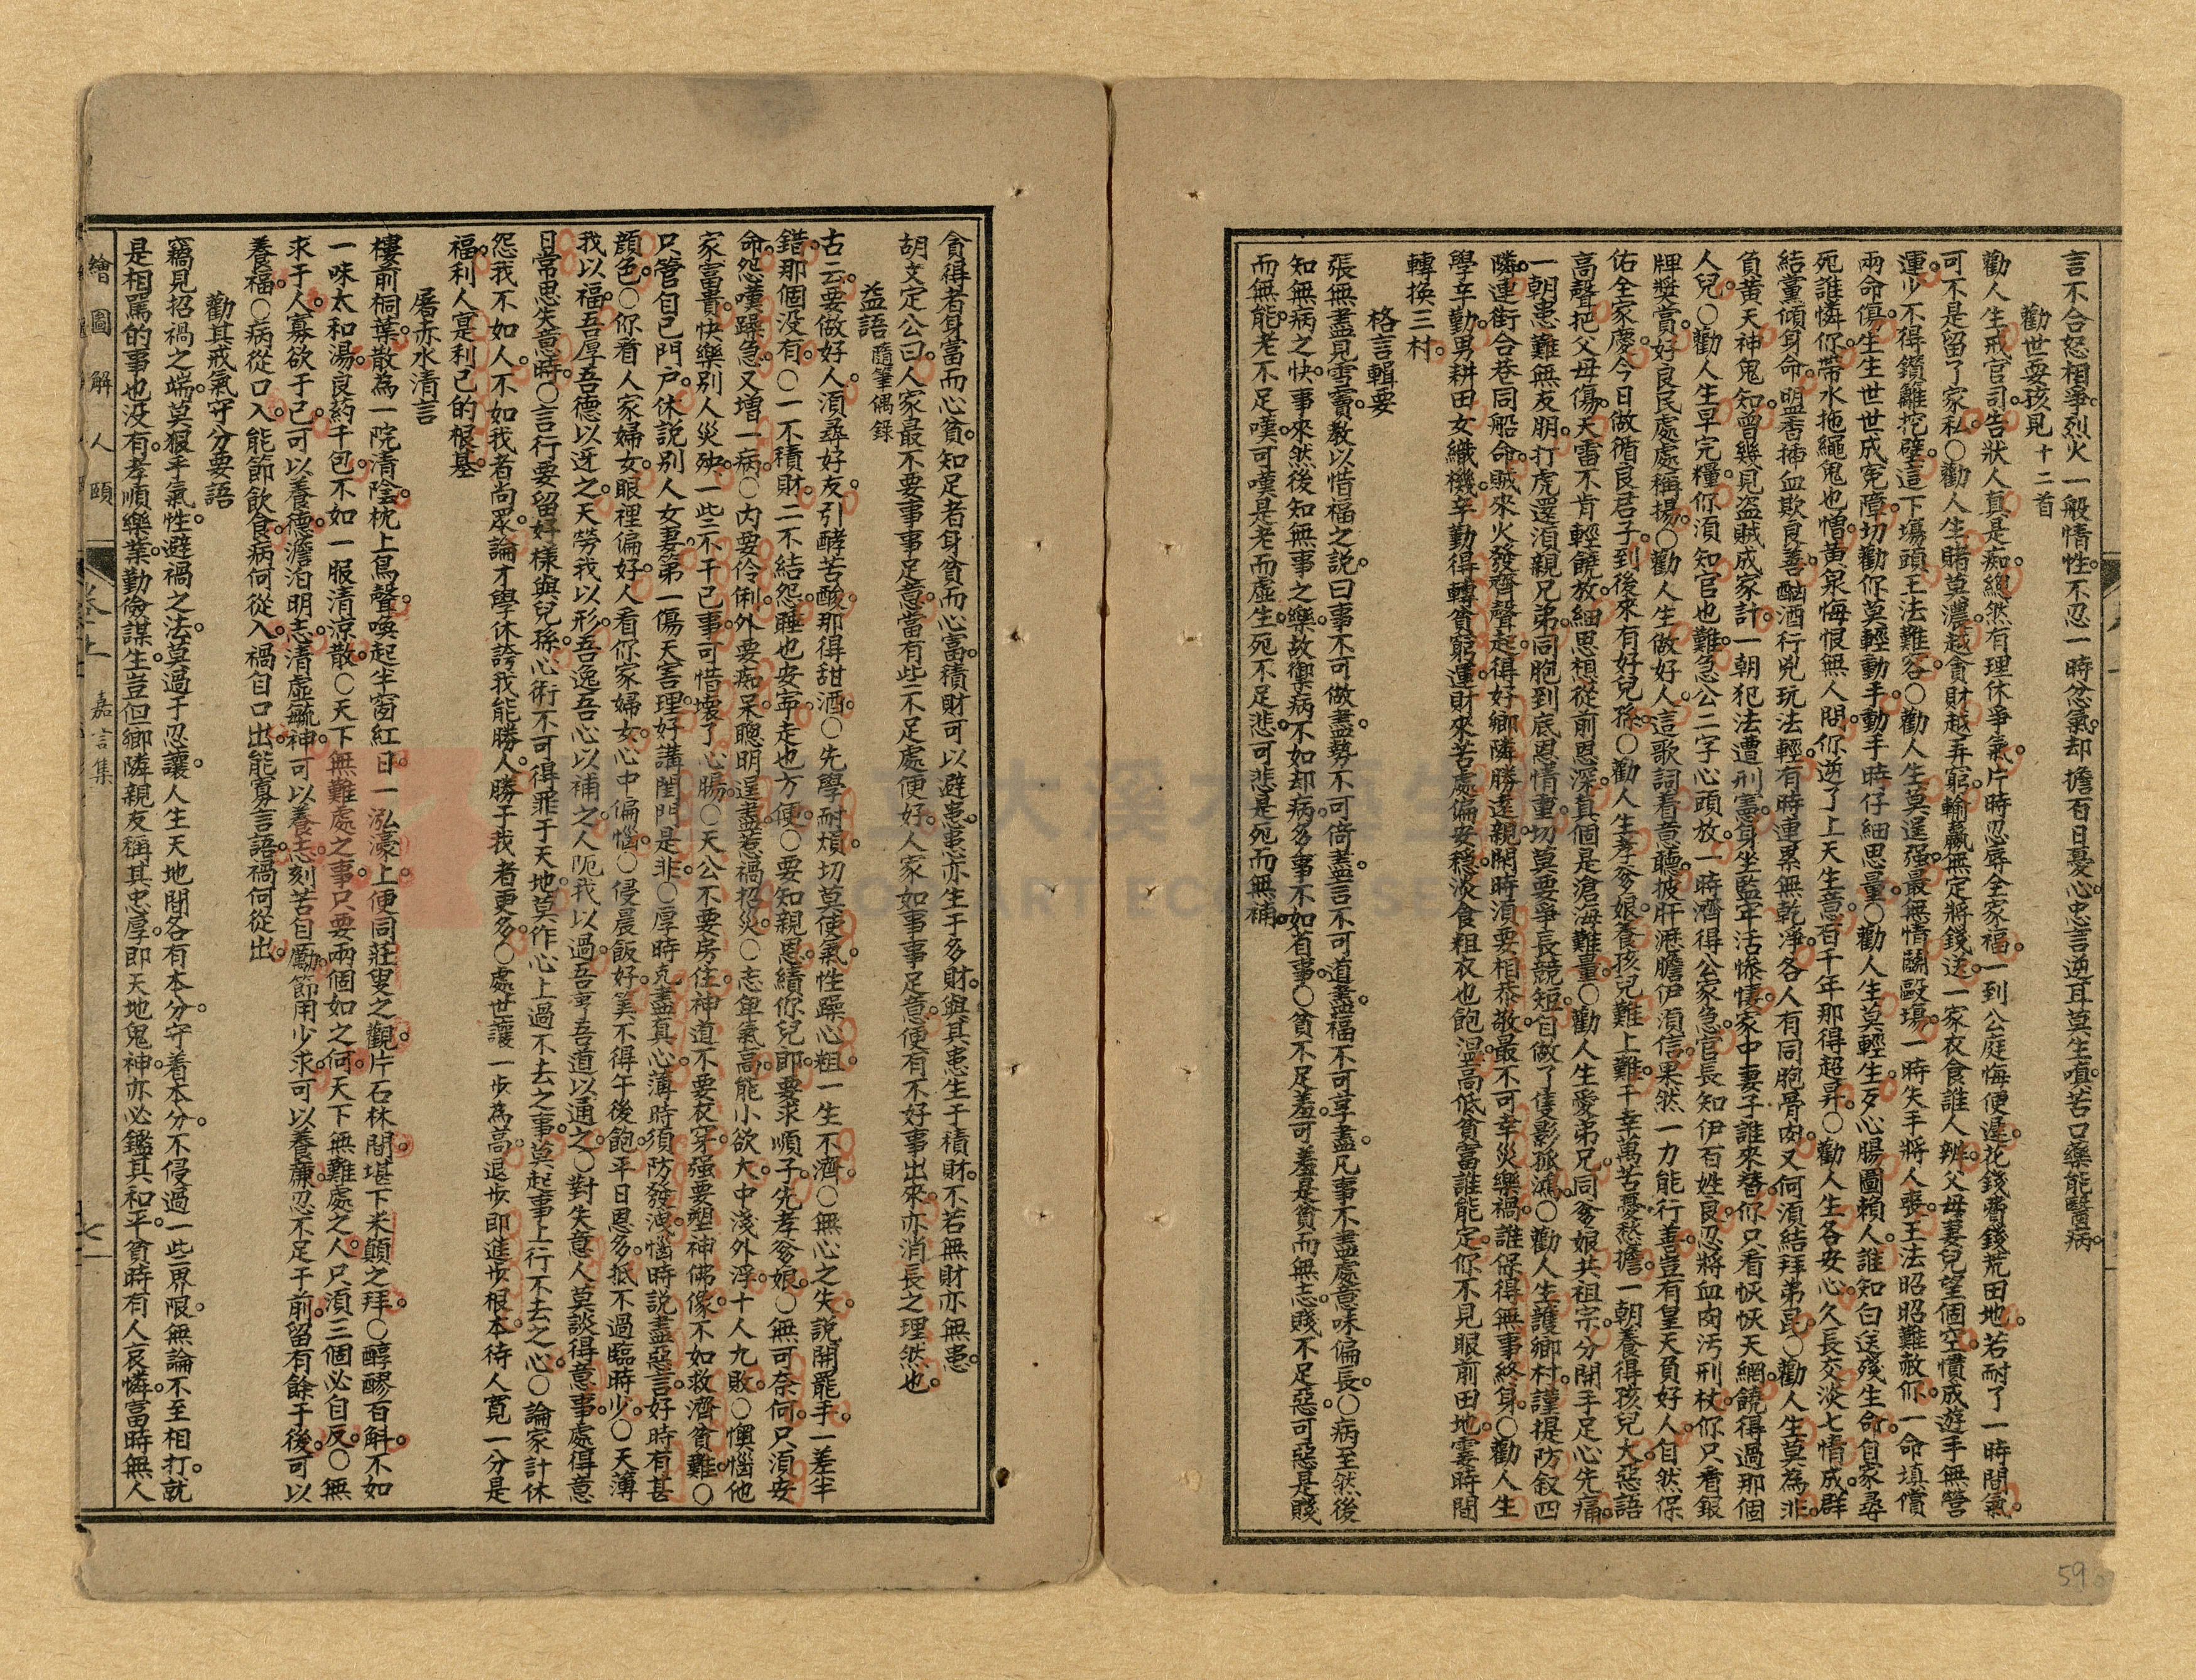 言不合怒相爭。烈火一般情性。不忍一時忿氣。却擔百日憂心。忠言逆耳莫生嗔。苦口藥能醫病。
勸世耍孩兒十二首
勸人生戒官司。告狀人真是痴。總然有理休爭氣。片時忍辱全家福。一到公庭悔便遲。花錢費錢荒田地。若耐了一時閒氣。
可不是留了家私。○勸人生賭莫濃。越貪財越弄窮。輸贏無定將錢送。一家衣食誰人辨。父母妻兒望個空。慣成遊手無營
運。少不得鑽籬挖壁。這下塲頭王法難容。○勸人生莫逞强。最無情鬭毆塲。一時失手將人喪。王法昭昭難赦你。一命填償
兩命俱。生生世世成冤障。切勸你莫輕動手。動手時仔細思量。○勸人生莫輕生。歹心腸圖賴人。誰知白送殘生命。自家尋
死誰憐你。帶水拖繩鬼也憎。黃泉悔恨無人問。你逆了上天生意。百千年那得超昇。○勸人生各安心。久長交淡七情成。群
結黨傾身命。盟香揷血欺良善。酗酒行兇玩法輕。有時連累無乾淨。各人有同胞骨肉。又何須結拜弟昆。○勸人生莫為非。
負黃天神鬼知。曾幾見盜賊成家計。一朝犯法遭刑憲。身坐監牢活慘悽。家中妻子誰來替。你只看恢恢天網。饒得過那個
人兒。○勸人生早完糧。你須知官也難。急公二字心頭放。一時濟得公家急。官長知伊百姓良。忍將血肉汚刑杖。你只看銀
牌獎賞。好良民處處稱揚。○勸人生做好人。這歌詞着意聽。披肝瀝膽伊須信。果然一力能行善。豈有皇天負好人。自然保
佑全家慶。今日做循良君子。到後來有好兒孫。○勸人生孝爹娘。養孩兒難上難。千辛萬苦憂愁擔。一朝養得孩兒大。惡語
高聲把父母傷。天雷不肯輕饒放。細思想從前恩深。真個是滄海難量。○勸人生愛弟兄。同爹娘共祖宗。分開手足心先痛。
一朝患難無友朋。打虎還須親兄弟。同胞到底恩情重。切莫要爭長競短。自做了隻影孤鴻。○勸人生護鄉村。謹提防叙四
隣。連街合巷同船命。賊來火發齊聲起。得好鄉隣勝遠親。閒時須要相恭敬。最不可幸災樂禍。誰保得無事終身。○勸人生
學辛勤。男耕田女織機。辛勤得轉貧窮運。財來苦處偏安穩。淡食粗衣也飽溫。高低貧富誰能定。你不見眼前田地。霎時間
轉換三村。
格言輯要
張無盡見雪竇。教以惜福之說。曰事不可做盡。勢不可倚盡。言不可道盡。福不可享盡。凡事不盡處。意味偏長。○病至然後
知無病之快。事來然後知無事之樂。故禦病不如却病。多事不如有事。○貧不足羞。可羞是貧而無志。賤不足惡。可惡是賤
而無能。老不足嘆。可嘆是老而虛生。死不足悲。可悲是死而無補。
貪得者身富而心貧。知足者身貧而心富。積財可以避患。患亦生于多財。與其患生于積財。不若無財亦無患。
胡文定公曰。人家最不要事事足意。當有些不足處便好。人家如事事足意。便有不好事出來。亦消長之理然也。
益語隨筆偶錄
古云。要做好人。須尋好友。引酵苦酸。那得甜酒。○先學耐煩。切莫使氣。性躁心粗。一生不濟。○無心之失。說開罷手。一差半
錯。那個没有。○一不積財。二不結怨。睡也安甯。走也方便。○要知親恩。績你兒郎。要求順子。先孝爹娘。○無可奈何。只須安
命。怨嘆躁急。又增一病。○内要伶俐。外要痴呆。聰明逞盡。惹禍招災。○志卑氣高。能小欲大。中淺外浮。十人九敗。○懊惱他
家富貴。快樂别人災殃。一些不干已事。可惜壞了心腸。○天公不要房住。神道不要衣穿。强要塑神佛像。不如救濟貧難。○
只管自己門户。休說别人女妻。第一傷天害理。好講閨門是非。○厚時克盡真心。薄時須防發洩。惱時說盡惡言。好時有甚
顏色。○你看人家婦女。眼裡偏好。人看你家婦女。心中偏惱。○侵晨飯好。筭不得午後飽。平日恩多。抵不過臨時少。○天薄
我以福。吾厚吾德以迓之。天勞我以形。吾逸吾心以補之。人阨我以過。吾亨吾道以通之。○對失意人。莫談得意事。處得意
日。常思失意時。○言行要留好樣與兒孫。心術不可得罪于天地。莫作心上過不去之事。莫起事上行不去之心。○論家計休
怨我不如人。不如我者尚眾。論才學休誇我能勝人。勝于我者更多。○處世讓一步為高。退步即進步根本。待人寬一分是
福。利人寔利己的根基。
屠赤水清言
樓前桐葉。散為一院清陰。枕上鳥聲。喚起半窗紅日。一泓濠上。便同莊叟之觀。片石林間。堪下米顛之拜。○醇醪百斛。不如
一味太和湯。良葯千包。不如一服清涼散。○天下無難處之事。只要兩個如之何。天下無難處之人。只須三個必自反。○無
求于人。寡欲于己。可以養德。澹泊明志。清虛毓神。可以養志。刻苦自勵。節用少求。可以養廉。忍不足于前。留有餘于後。可以
養福。○病從口入。能節飲食。病何從入。禍自口出。能寡言語。禍何從出。
勸其戒氣守分要語
竊見招禍之端。莫狠乎氣性。避禍之法。莫過于忍讓。人生天地間。各有本分。守着本分。不侵過一些界限。無論不至相打。就
是相罵的事也没有。孝順樂業。勤儉謀生。豈但鄉隣親友稱其忠厚。即天地鬼神。亦必鑑其和平。貧時有人哀憐。富時無人
繪圖解人頤　嘉言集
59